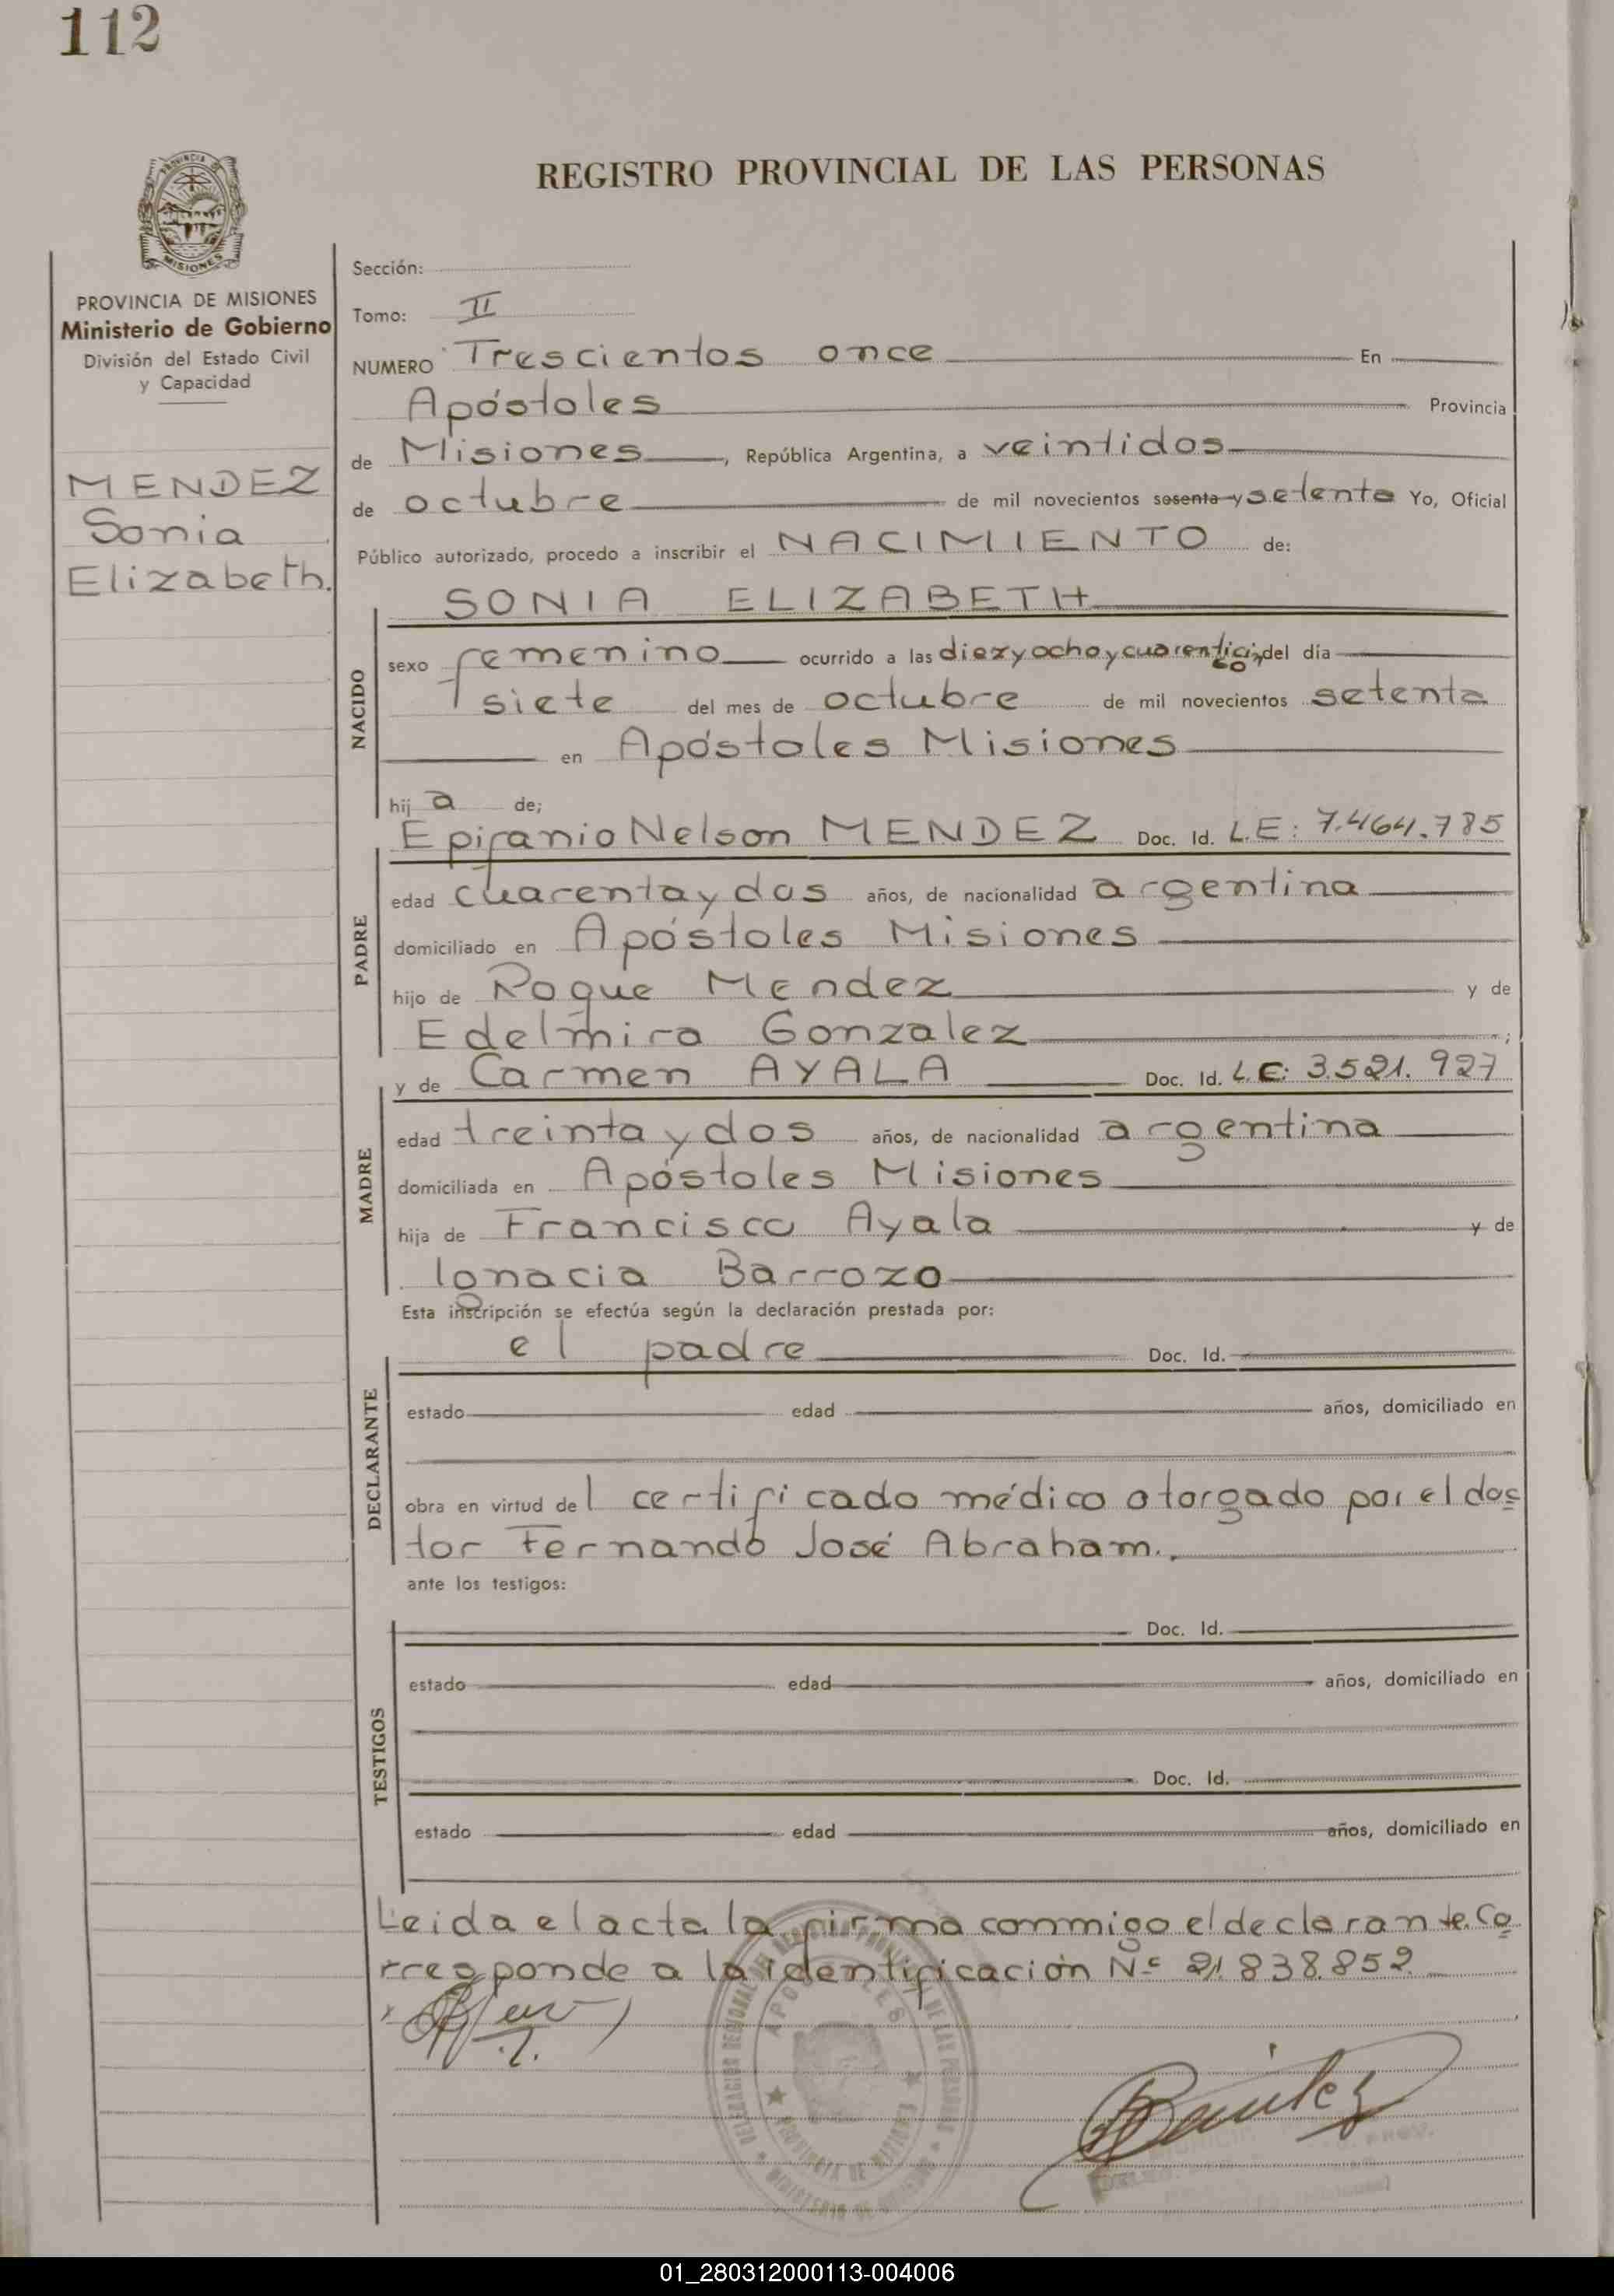 112
REGISTRO PROVINCIAL DE LAS PERSONAS
PROVINCIA DE MISIONES
Ministerio de Gobierno
División del Estado Civil
y Capacidad
MENDEZ
Sonia
Elizabeth.
Sección:
Tomo: II
NUMERO Trescientos once En
Apóstoles Provincia
de Misiones, República Argentina, a veintidos
de octubre de mil novecientos sesenta y setenta Yo, Oficial
Público autorizado, procedo a inscribir el NACIMIENTO de:
SONIA ELIZABETH
NACIDO
sexo femenino ocurrido a las diez y ocho y del día
siete del mes de octubre de mil novecientos setenta
en Apóstoles Misiones
hij a de;
Epifanio Nelson MENDEZ Doc. Id. L.E: 7.464.785
PADRE
edad cuarenta y dos años, de nacionalidad argentina
domiciliado en Apóstoles Misiones
hijo de Roque Mendez y de
Edelmira Gonzalez ;
y de Carmen AYALA Doc. Id. L.C: 3.521.927
MADRE
edad treinta y dos años, de nacionalidad argentina
domiciliada en Apóstoles Misiones
hija de Francisco Ayala y de
Ignacia Barrozo
Esta inscripción se efectúa según la declaración prestada por:
el padre Doc. Id.
DECLARANTE
estado edad años, domiciliado en
obra en virtud del certificado médico otorgado por el doc
tor Fernando José Abraham.
ante los testigos:
Doc. Id.
TESTIGOS
estado edad años, domiciliado en
Doc. Id.
estado edad años, domiciliado en
Leida el acta la firma conmigo el declarante. Co
rresponde a la identificación Nº 21.838.852
Benitez
APOSTOLES
PROVINCIA DE MISIONES
01_280312000113-004006